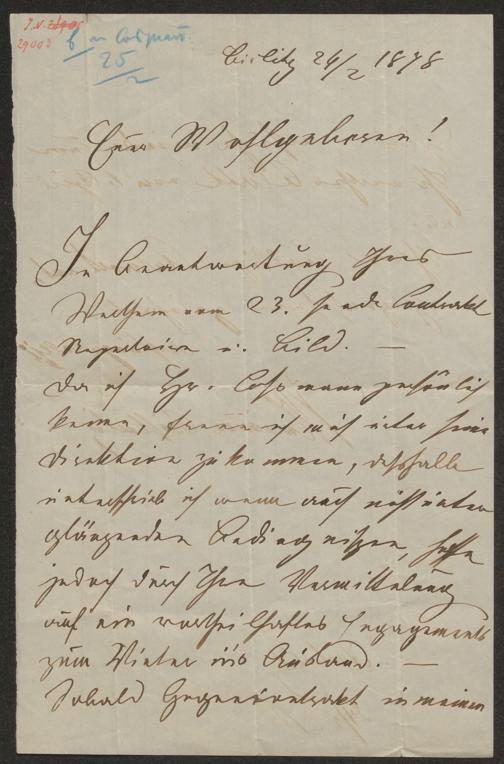 25
Bielitz 24/2 1878
Euer Wohlgeboren!
In Beantwortung Ihres
Werthem vom 23. sende Contrakt
Repertoire u. Bild. —
Da ich Hr. Cossmann persönlich
kenne, freue ich mich unter seine
Direktion zu kommen, desshalb
unterschrieb ich wenn auch nicht unter
glänzenden Bedingnissen, hoffe
jedoch durch Ihre Vermittelung
auf ein vortheilhaftes Engagement
zum Winter in's Ausland. —
Sobald Gegencontrakt in meinen